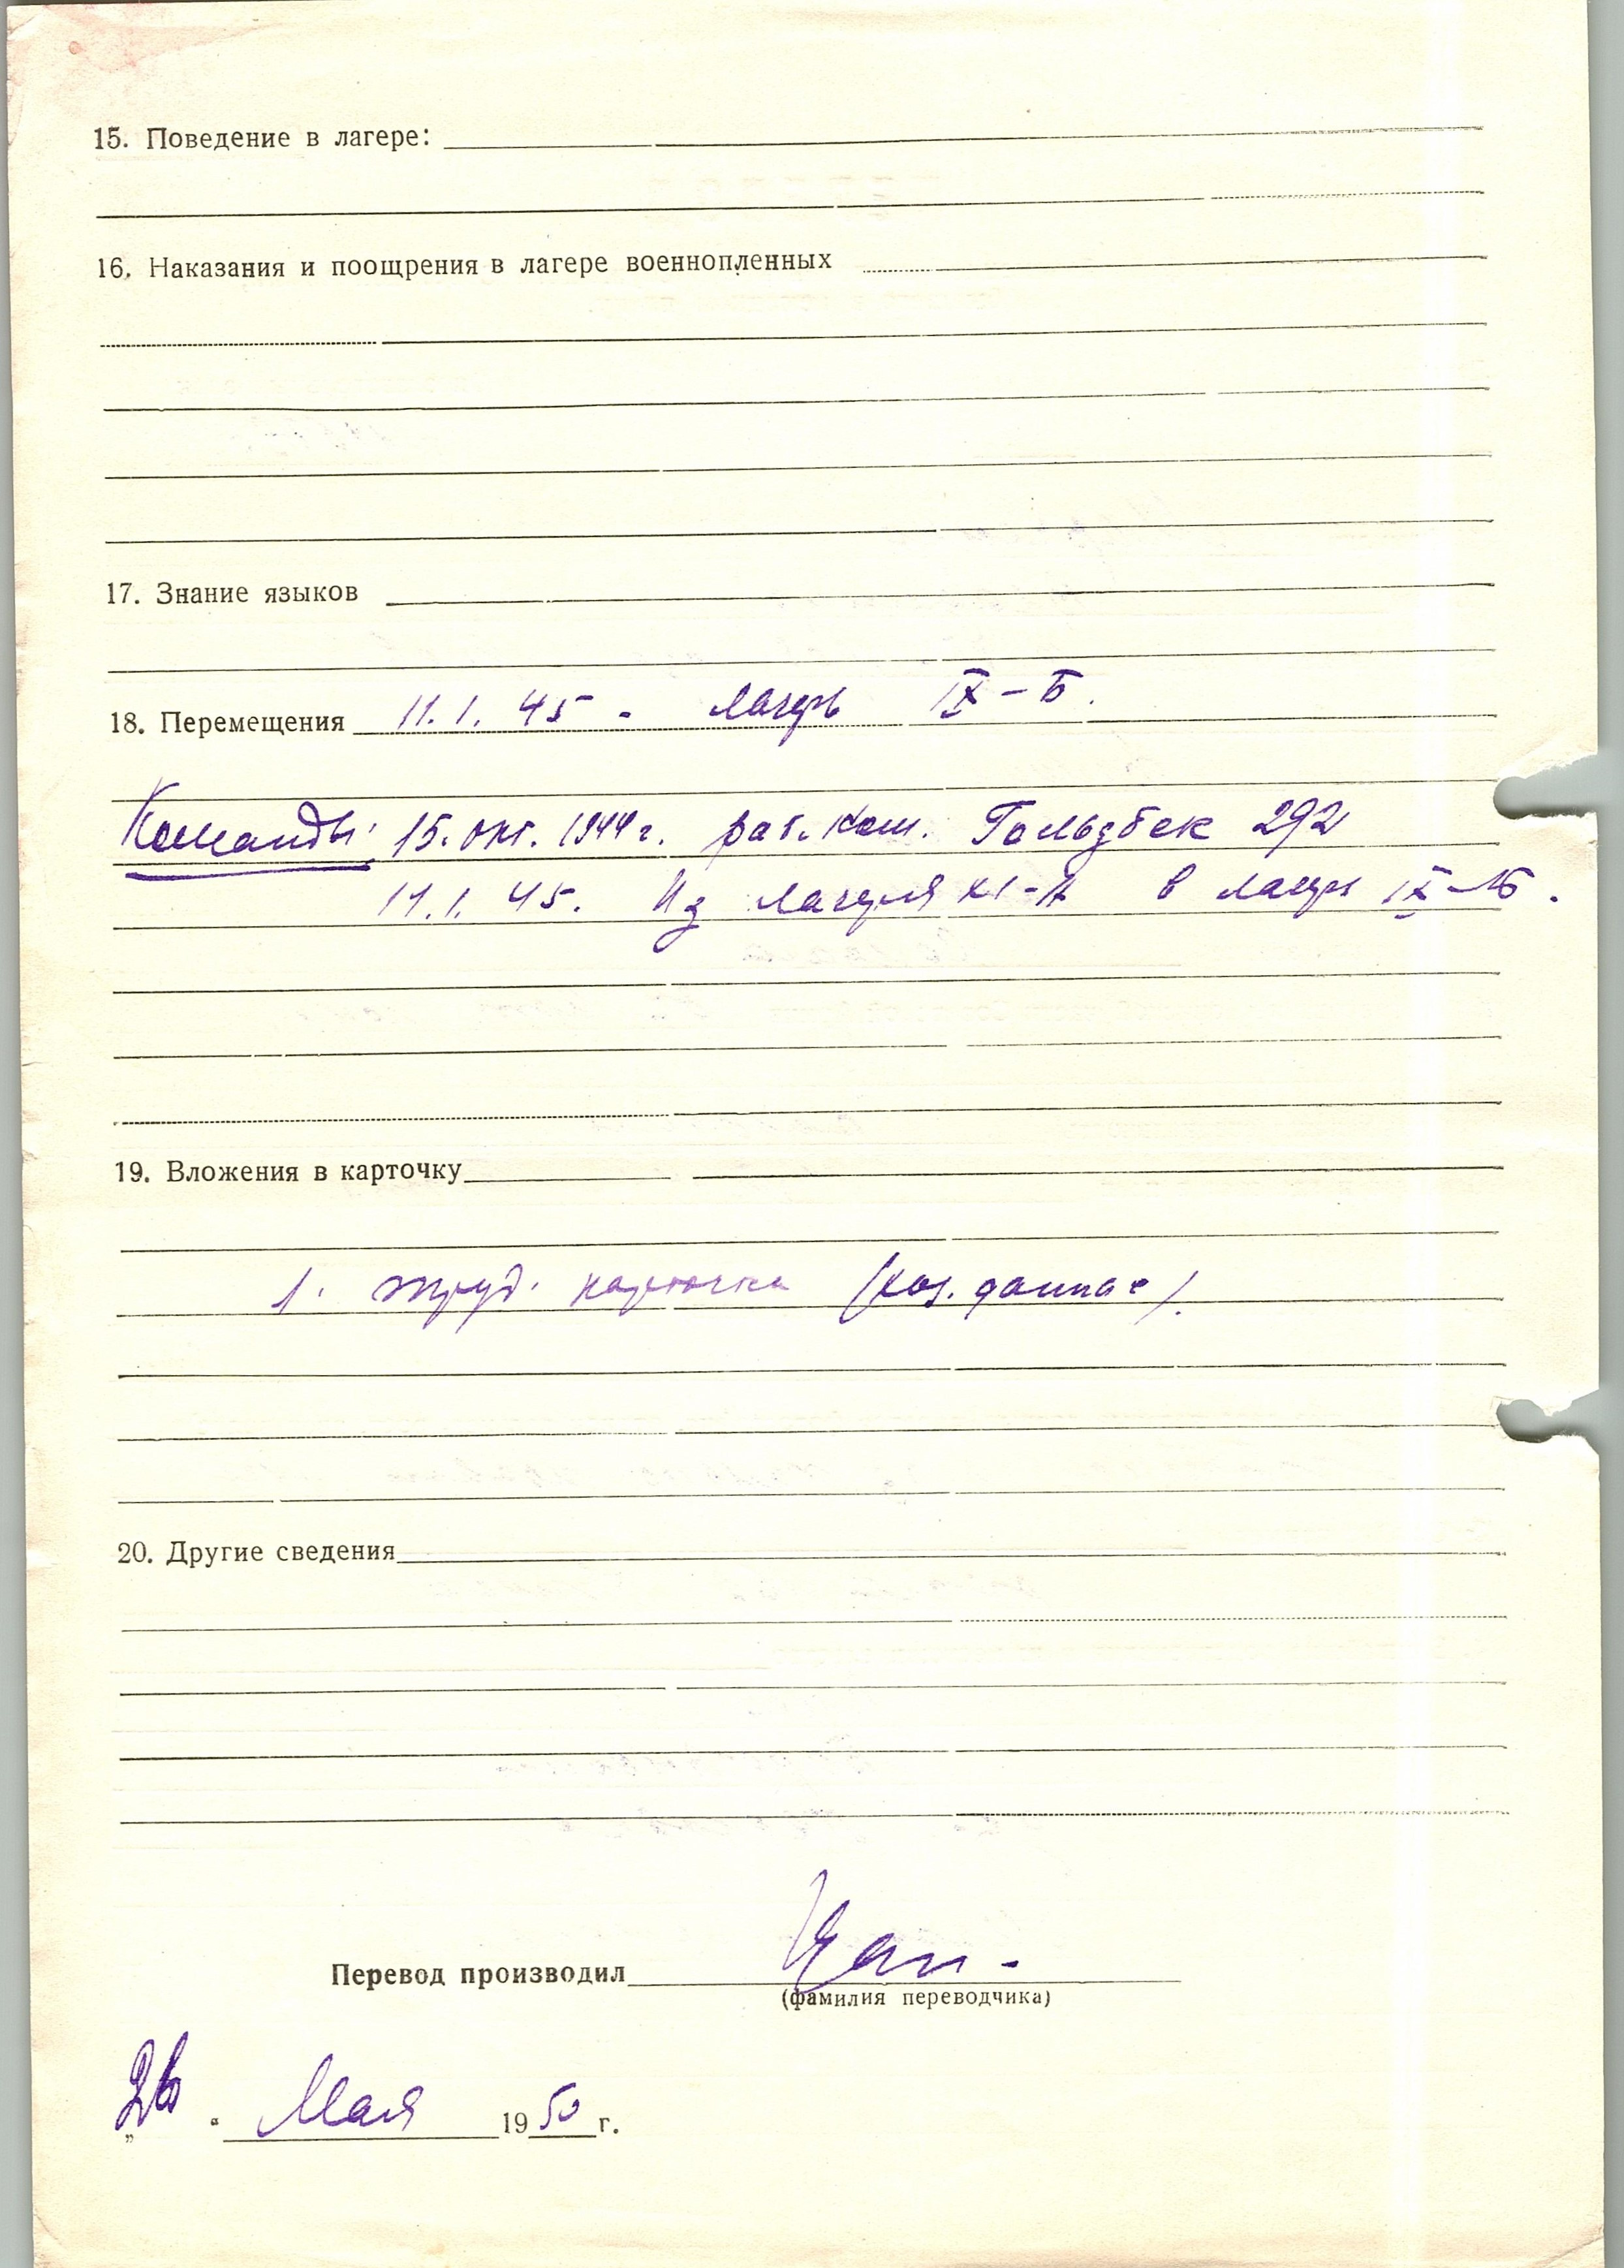 15. Поведение в лагере:
16. Наказания и поощрения в лагере военнопленных
17. Знание языков
18. Перемещения 11.1.45 - лагерь IX-Б.
Команды: 15. окт. 1944 г. раб. ком. Гольдбек 292
11.1.45. Из лагеря XI-А в лагерь IX-Б.
19. Вложения в карточку
1. труд. карточка (данные).
20. Другие сведения
Перевод производил
(фамилия переводчика)
„26“ Мая 1950 г.